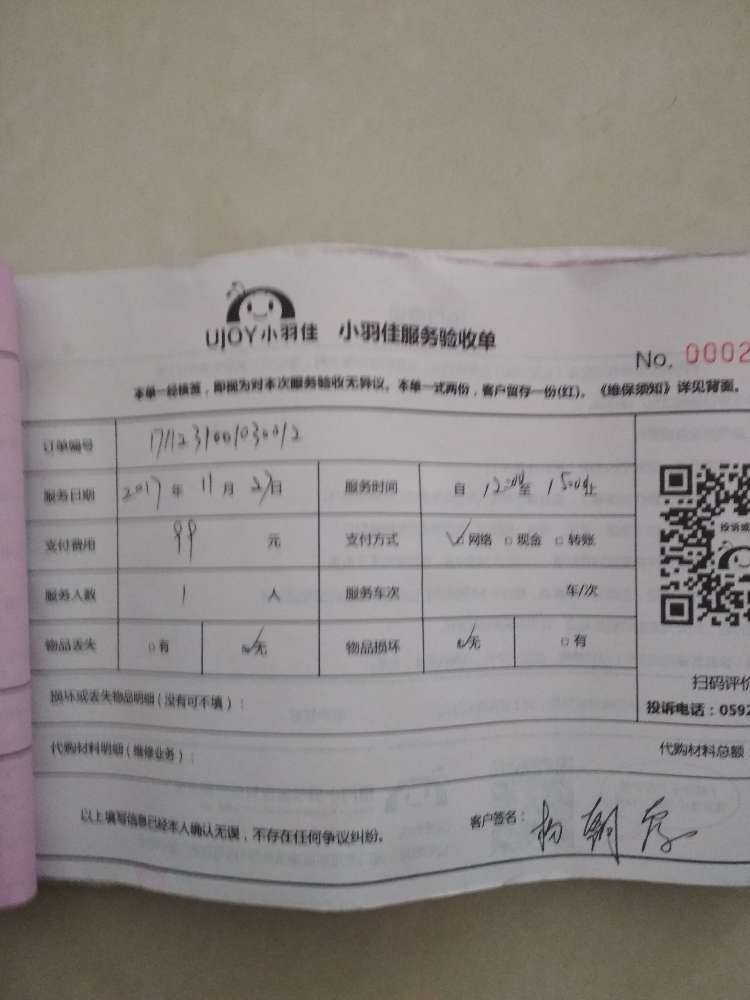 UJOY小羽佳 小羽佳服务验收单
No. 0002
本单一经核签，即视为对本次服务验收无异议。本单一式两份，客户留存一份(红)。《维保须知》详见背面。
订单编号 1711231001030012
服务日期 2017年 11月 27日 服务时间 自 12:00至 15:00止
支付费用 99 元 支付方式 网络 现金 转账
投诉或
服务人数 1 人 服务车次 车/次
物品丢失 有 无 物品损坏 无 有
扫码评价
损坏或丢失物品明细(没有可不填)：
投诉电话：0592
代购材料明细(维修业务)： 代购材料总额
以上填写信息已经本人确认无误，不存在任何争议纠纷。 客户签名： 杨朝